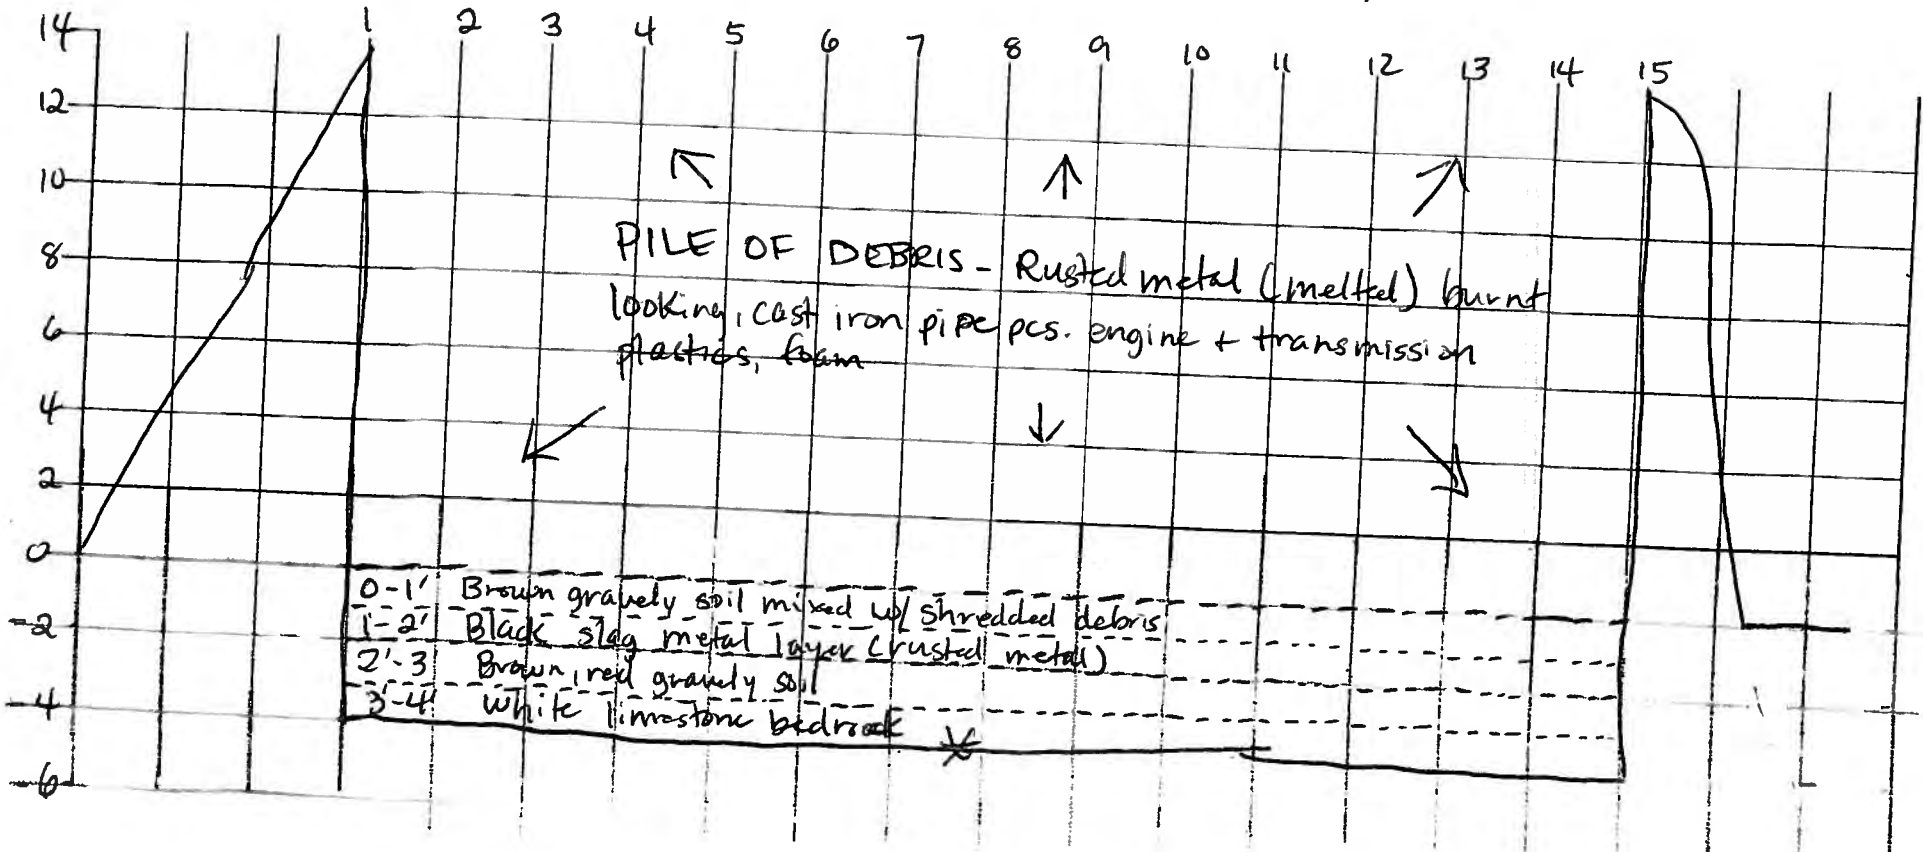 1 2 3 4 5 6 7 8 9 10 11 12 13 14 15
14
12
10
8
6
4
2
0
-2
-4
-6
PILE OF DEBRIS - Rusted metal (melted) burnt
looking, cast iron pipe pcs. engine + transmission
plastics, foam
0-1' Brown gravely soil mixed w/ shredded debris
1-2' Black slag metal layer (rusted metal)
2'-3 Brown, red gravely soil
3'-4' White limestone bedrock
X